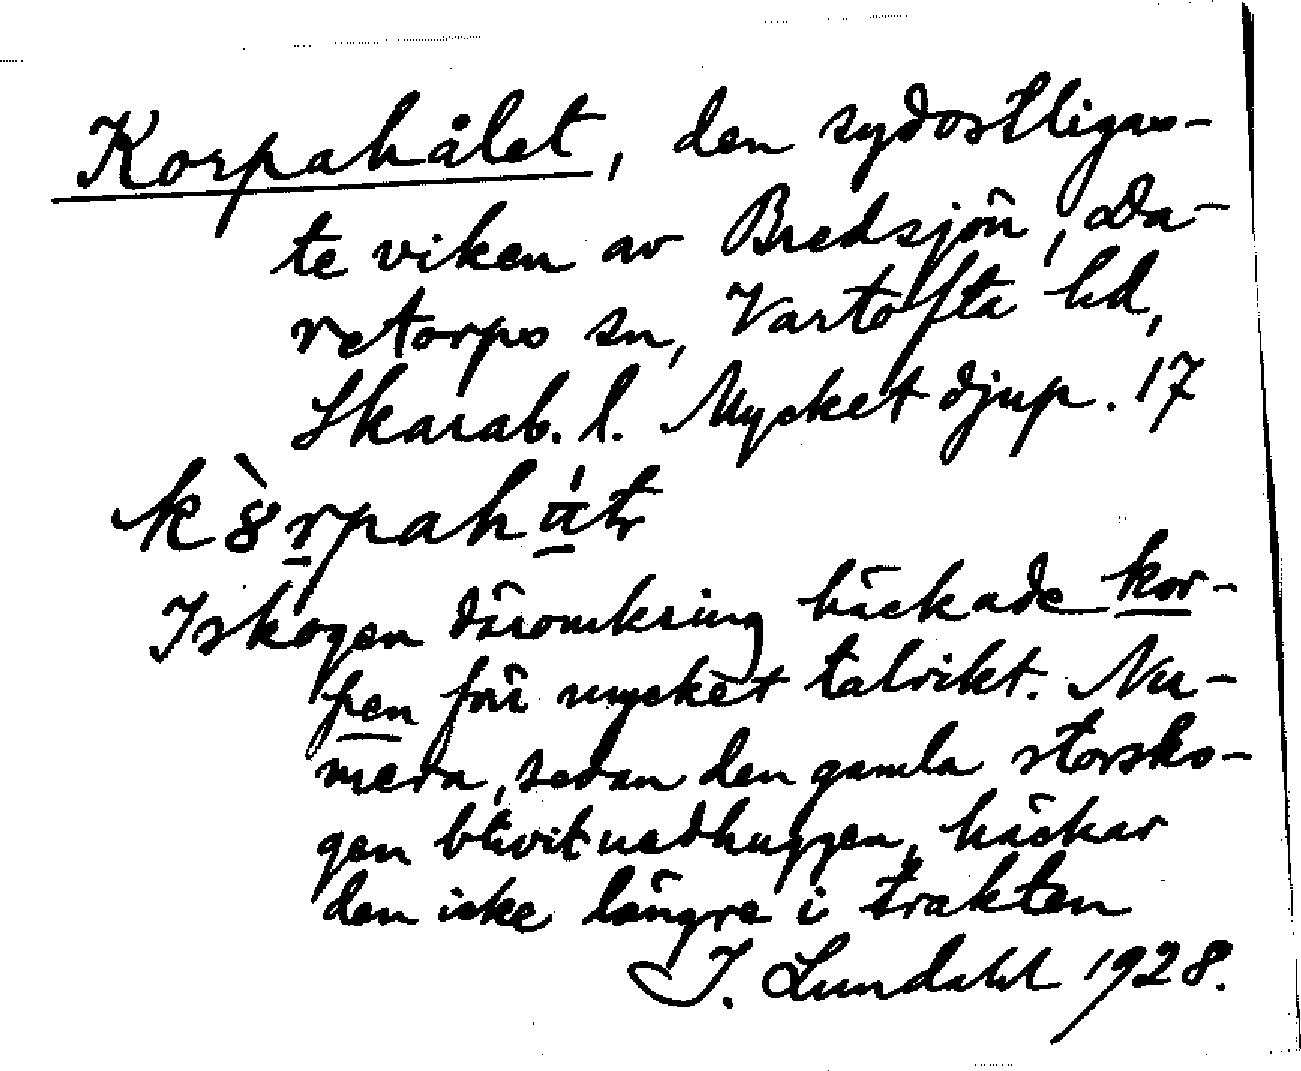 Korpahålet, den sydostligas-
te viken av Bredsjön, Da-
retorps sn, Vartofta hd,
Skarab. l. Mycket djup. 17
I skogen däromkring häckade kor-
pen förr mycket talrikt. Nu-
mera, sedan den gamla storsko-
gen blivit nedhuggen, häckar
den icke längre i trakten
I. Lundahl 1928.